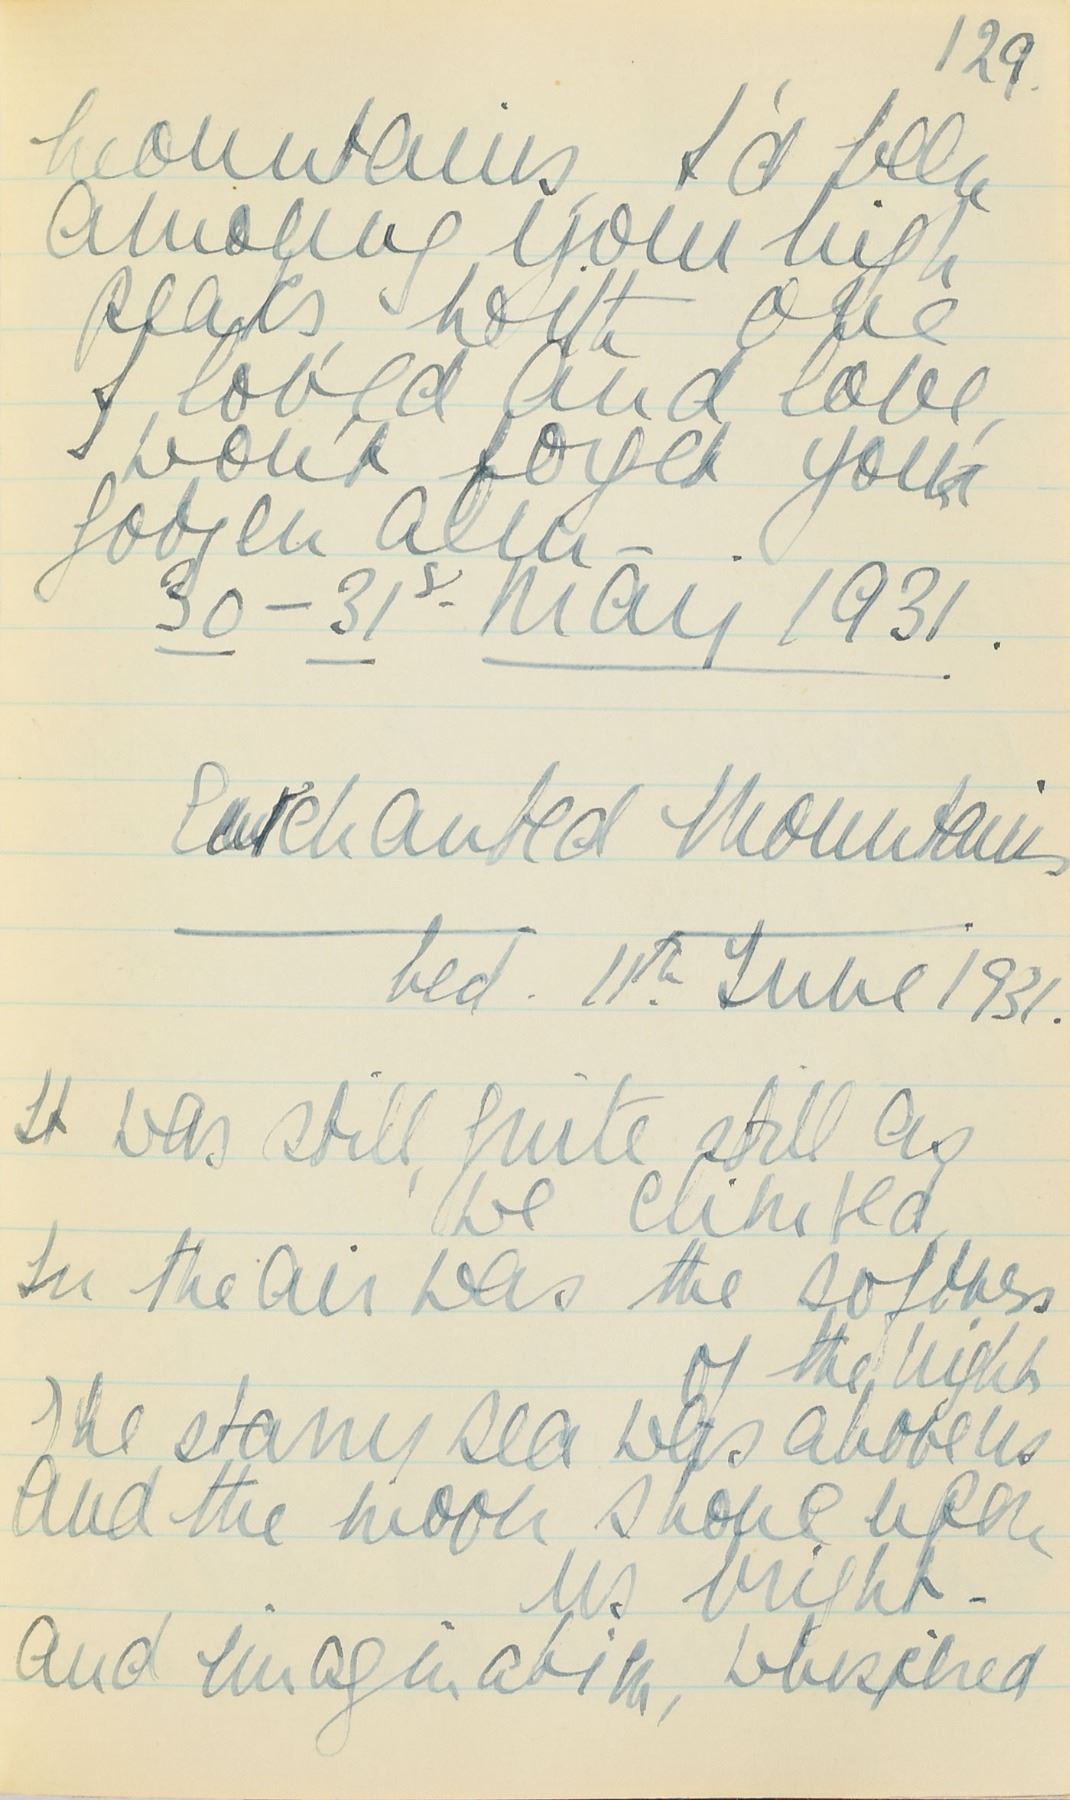 129.
mountains, I'd been
among your high
peaks, with one
I loved and love,
won't forget your
Gotzen Alm - .
30 - 31st May 1931.
Enchanted Mountains
bed. 11th June 1931.
It was still, quite still as
we climbed,
In the air was the softness
of the night
The starry sea was above us
And the moon shone upon
us bright -
And imagination, whispered